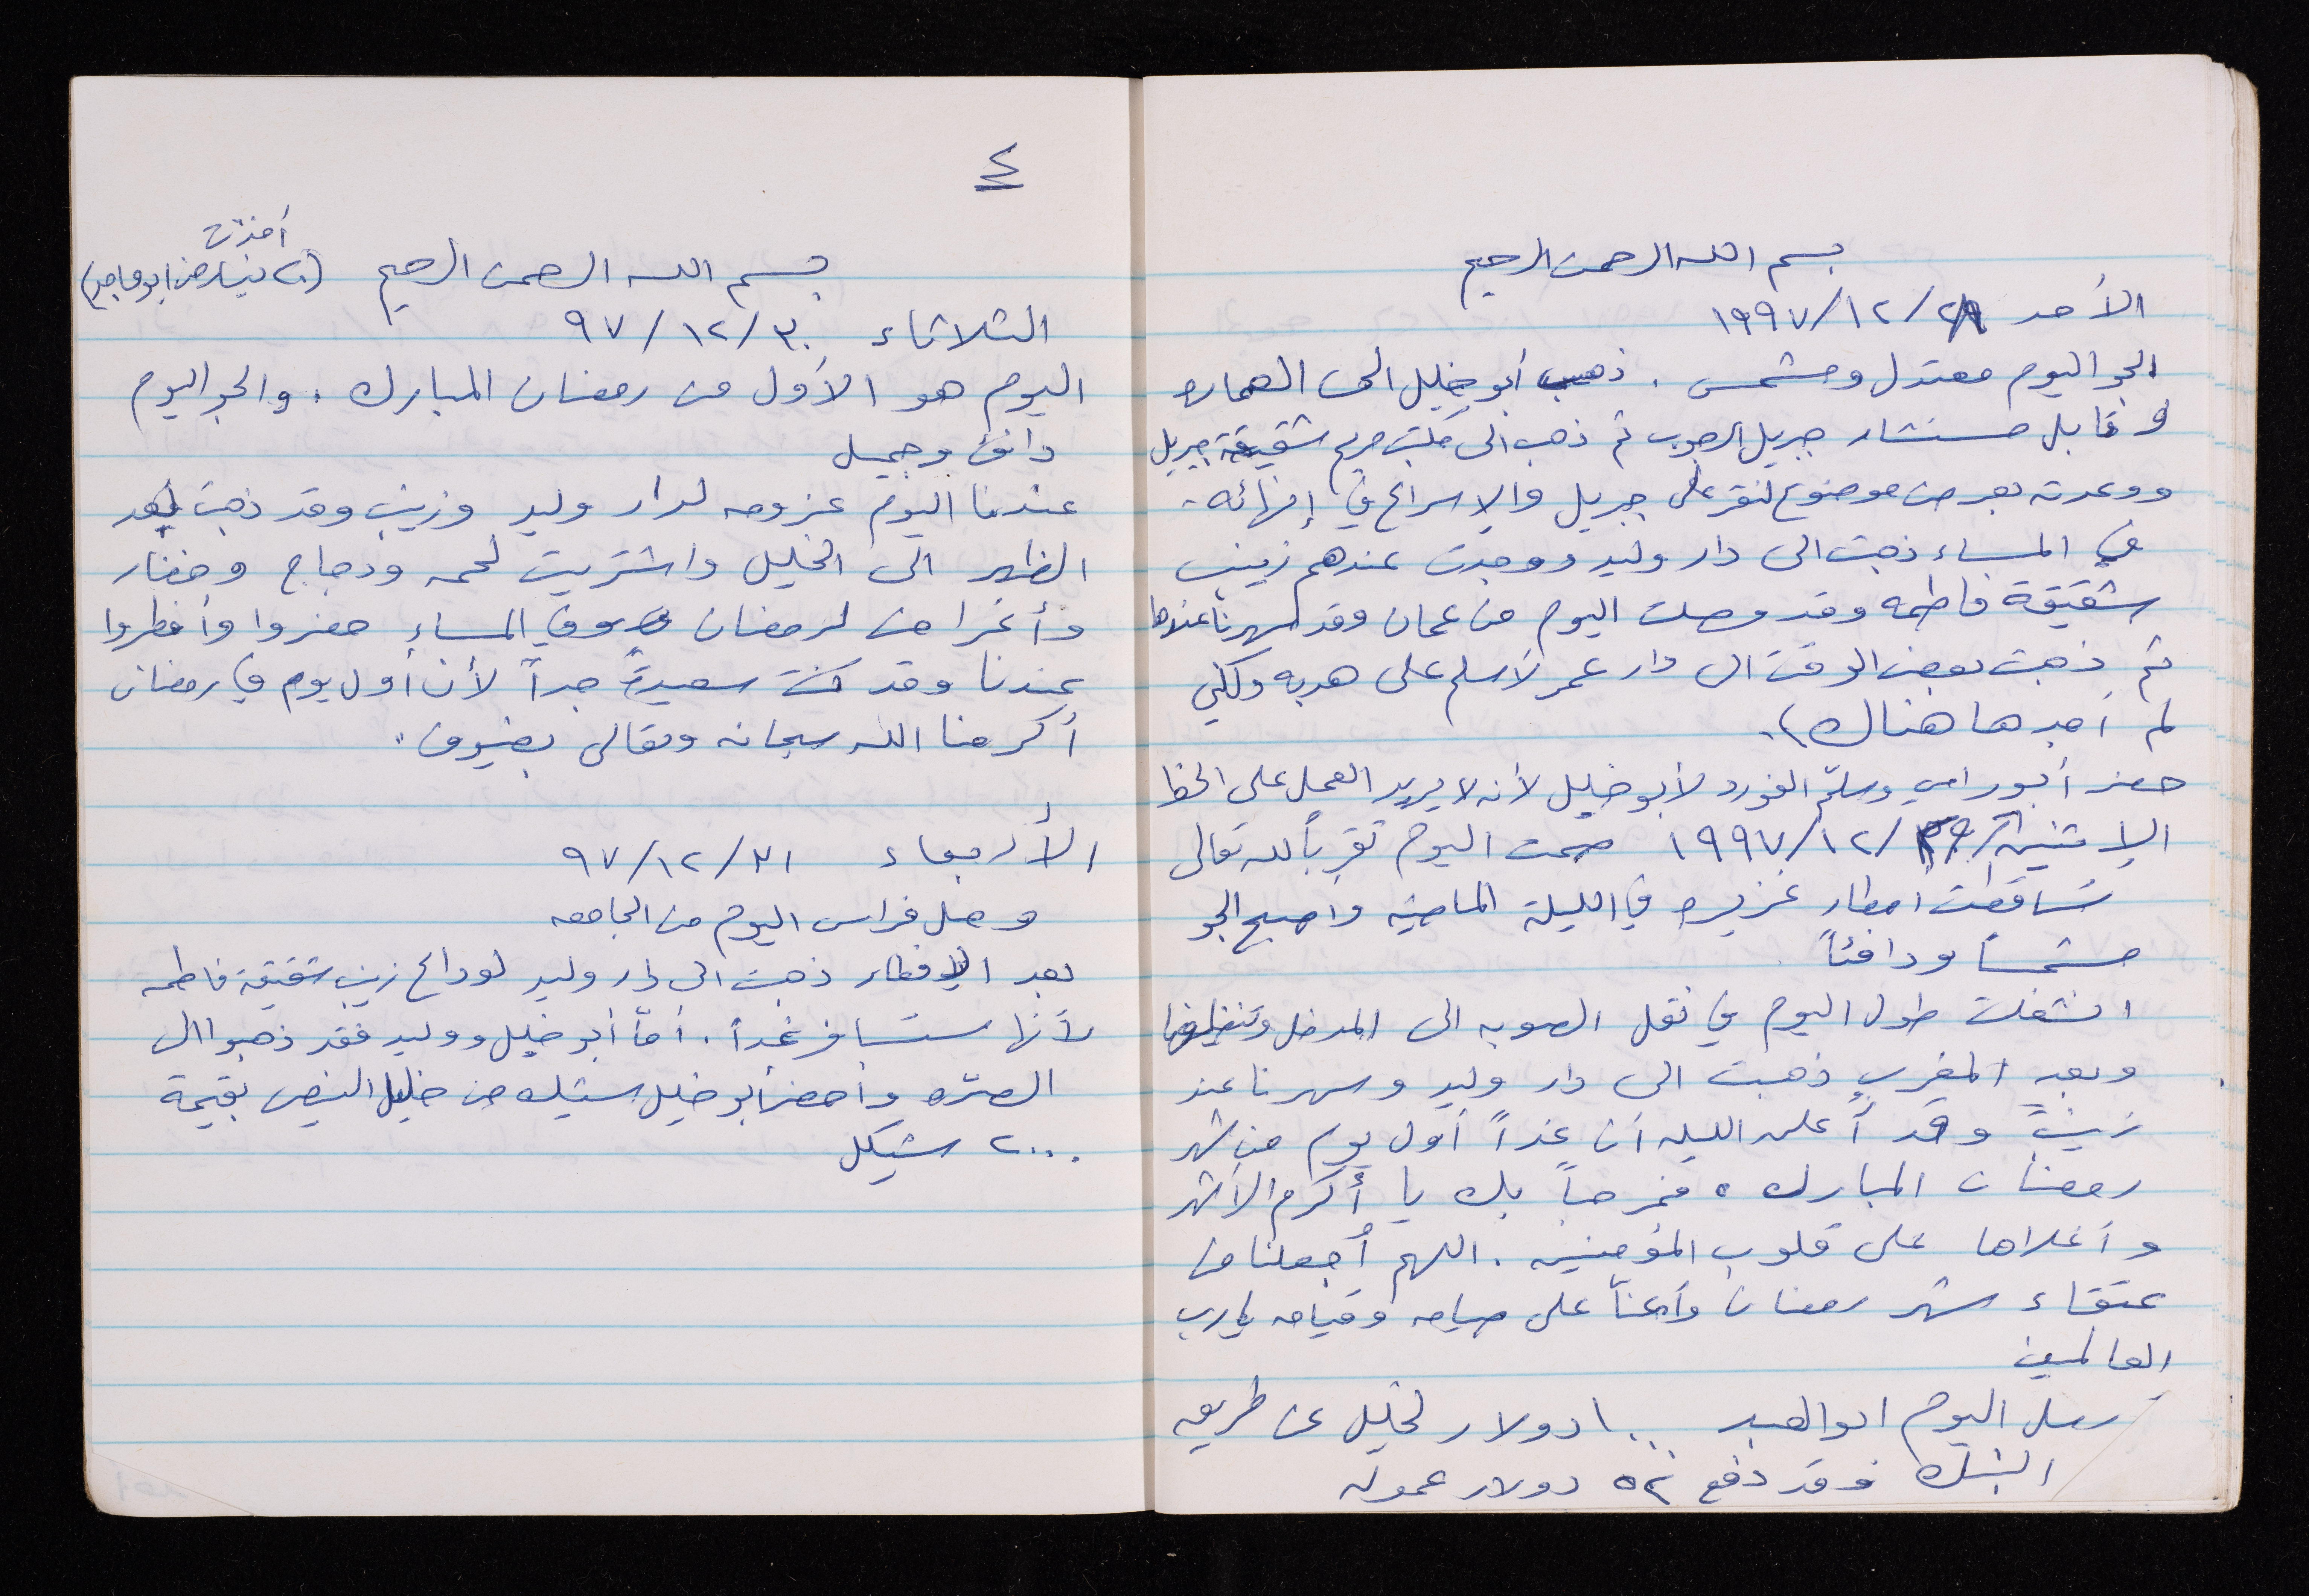 بسم الله الرحمن الرحيم
الأحد ٢٨/١٢/١٩٩٧
الجو اليوم معتدل ومشمس. ذهب أبو خليل الى العماره
وقابل مستشار جبريل الرجوب ثم ذهب الى مكتب مريم شقيقة جبريل
ووعدته بعرض موضوع على جبريل والإسراع في إنهائه.
في المساء ذهبت الى دار وليد ووجدت عندهم زينب
شقيقة فاطمه وقد وصلت اليوم من عمان وقد سهرنا عندها
ثم ذهبت بعض الوقت الى دار عمر لأسلم على هديه ولكني
لم أجدها هناك).
حضر أبو رامي وسلّم الفورد لأبو خليل لأنه لا يريد العمل على الخط
الإثنين ٢٩/١٢/١٩٩٧ صمت اليوم تقرباً لله تعالى
تساقطت امطار غزيره في الليلة الماضيه واصبح الجو
مشمساً ودافئاً
انشغلت طول اليوم في نقل الصوبه الى المدخل وتنظيفها
وبعد المغرب ذهبت الى دار وليد وسهرنا عند
زينب وقد أعلن الليله أن غداً أول يوم من شهر
رمضان المبارك، فمرحباً بك يا أكرم الأشهر
وأغلاها على قلوب المؤمنين. اللهم أجعلنا من
عتقاء شهر رمضان وأعنّا على صيامه وقيامه يا رب
العالمين
رسل اليوم ابو العبد ١٠٠٠ دولار لخليل عن طريق
البنك وقد دفع ٥٢ دولار عموله
٤
أخذت
بسم الله الرحمن الرحيم (٢٠ دينار من ابو ماجد)
الثلاثاء ٣٠/١٢/٩٧
اليوم هو الأول من رمضان المبارك، والجو اليوم
دافئ وجميل
عندنا اليوم عزومه لدار وليد وزينب وقد ذهبت بعد
الظهر الى الخليل واشتريت لحمه ودجاج وخضار
وأغراض لرمضان وفي المساء حضروا وأفطروا
عندنا وقد كنت سعيدة جداً لأن أول يوم في رمضان
أكرمنا الله سبحانه وتعالى بضيوف.
الأربعاء ٣١/١٢/٩٧
وصل فراس اليوم من الجامعه
بعد الإفطار ذهبت الى دار وليد لوداع زينب شقيقة فاطمه
لأنها ستسافر غداً. أمّا أبو خليل ووليد فقد ذهبوا الى
الصرّه وأحضر أبو خليل ستيك من خليل النيص بقيمة
٢٠٠٠ شيكل